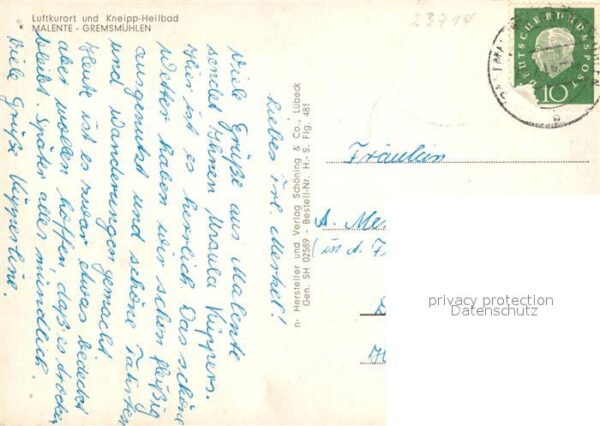 Luftkurort und Kneipp-Heilbad
MALENTE - GREMSMÜHLEN
23714
DEUTSCHE BUNDESPOST
10
Liebes Frl. Menzel!
Viele Grüße aus Malente
sendet Ihnen Ursula Küppers.
Hier ist es herrlich. Das schöne
Wetter haben wir schon fleißig
ausgenutzt und schöne Fahrten
und Wanderungen gemacht.
Heute ist es zwar etwas bedeckt
aber wollen hoffen, daß es trocken
bleibt. Später alles mündlich!
Viele Grüße Küpperline.
n- Hersteller und Verlag Schöning & Co., Lübeck
Gen. SH 02589 - Bestell-Nr. H.- S. Flg. 481
Fräulein
A. Me
(in A. F
privacy protection
Datenschutz